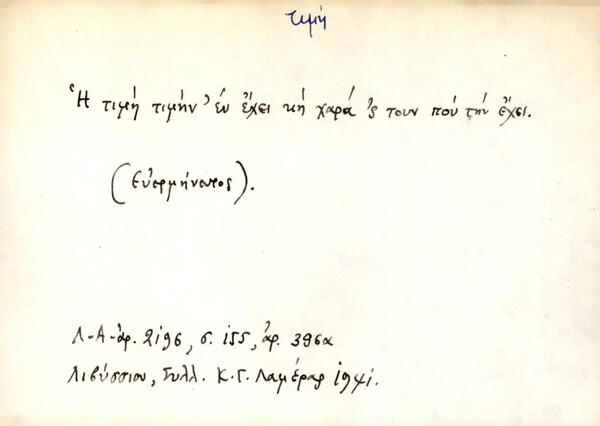 τιμή
Ἡ τιμὴ τιμὴν 'ὲν ἔχει κὴ χαρά 'ς τουν ποὺ τὴν ἔχει.
(Εὐερμήνευτος).
Λ-Α-ἀρ. 2196, σ. 155, ἀρ. 396α
Λιβύσσιου, Συλλ. Κ.Γ. Λαμέρας 1941.